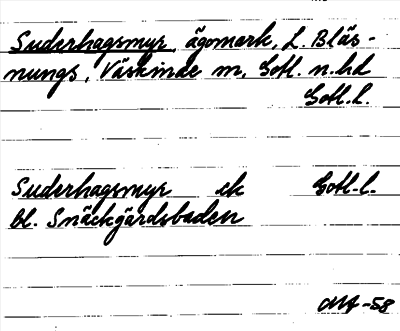 Suderhagsmyr, ägomark, L. Bläs-
nungs, Väskinde sn, Gotl. n. hd
Gotl. l.
Suderhagsmyr ek Gotl. l.
Bl. Snäckgärdsbaden
-58